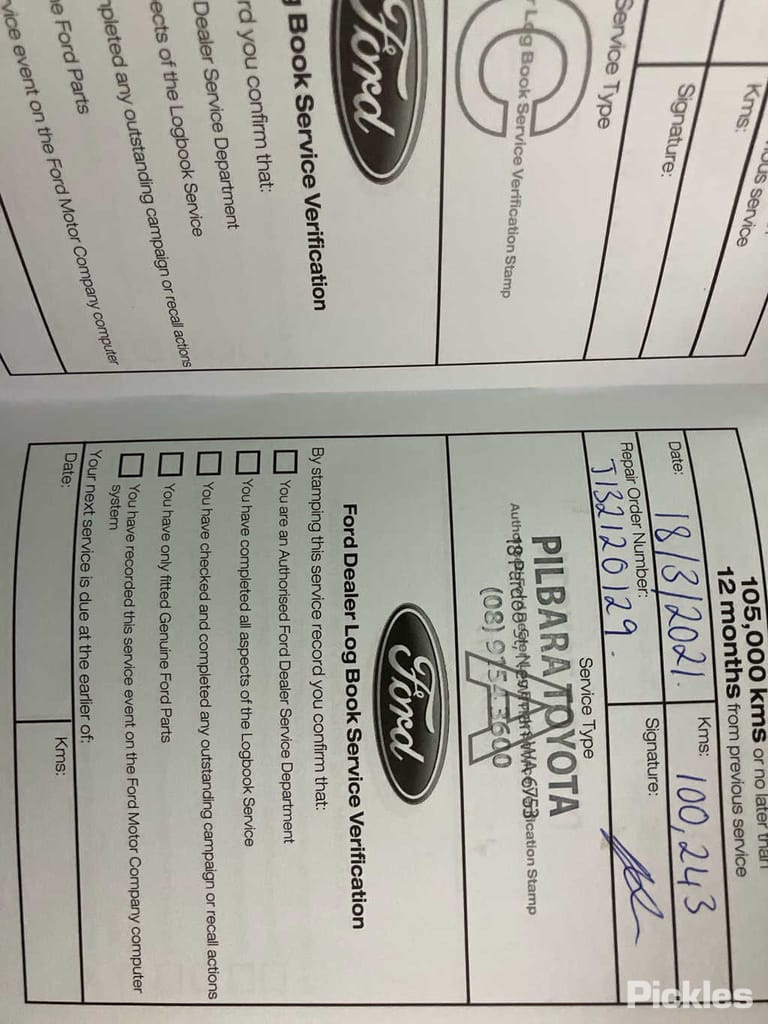 Service Type
Signature:
Kms:
service
Log Book Service Verification Stamp
C
Ford
Book Service Verification
you confirm that:
Dealer Service Department
of the Logbook Service
any outstanding campaign or recall actions
Ford Parts
event on the Ford Motor Company computer
105,000 kms or no later than
12 months from previous service
Date: 18/3/2021. Kms: 100,243
Repair Order Number: Signature:
J132120129.
Service Type
A
PILBARA TOYOTA
WA 6753
(08) 9154 3600
Stamp
Ford
Ford Dealer Log Book Service Verification
By stamping this service record you confirm that:
You are an Authorised Ford Dealer Service Department
You have completed all aspects of the Logbook Service
You have checked and completed any outstanding campaign or recall actions
You have only fitted Genuine Ford Parts
You have recorded this service event on the Ford Motor Company computer
system
Your next service is due at the earlier of:
Date: Kms:
Pickles